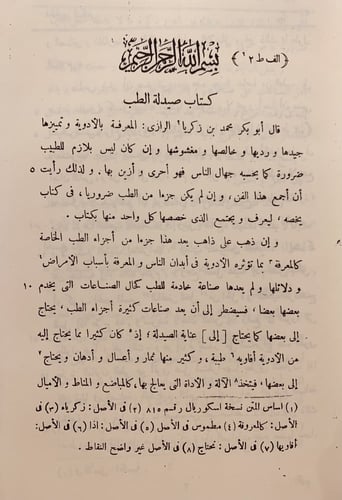 ﴿الف ط ١٢﴾ بسم الله الرحمن الرحيم
كتاب صيدلة الطب
قال أبو بكر محمد بن زكريا٢ الرازى: المعرفة بالأدوية وتمييزها
جيدها و رديها و خالصها و مغشوشها و إن كان ليس بلازم للطبيب
ضرورة كما يحسبه جهال الناس فهو أحرى و أزين بها. و لذلك رأيت ٥
أن أجمع هذا الفن، و إن لم يكن جزءا من الطب ضروريا، فى كتاب
يخصه، ليعرف و يجتمع الذى خصصها كل واحد منها بكتاب.
و إن ذهب على ذاهب بعد هذا جزءا من أجزاء الطب الخاصة
كالمعرفة٣ بما تؤثره الأدوية فى أبدان الناس و المعرفة بأسباب الأمراض٤
و دلائلها و لم يعدها صناعة خادمة للطب كحال الصناعات التى يخدم ١٠
بعضها بعضا، فسيضطر إلى أن يعد صناعات كثيرة أجزاء الطب. يحتاج
بعضها كما يحتاج [إلى] عناية الصيدلة؛ إذ٥ كان كثيرا مما يحتاج إليه
من الأدوية أفاويه٦ طيبة، و كثير منها ثمار و أعسال و أدهان و يحتاج٧
إلى بعضها، فيتخذ٨ الآلة و الأداة التى يعالج بها، كالمباضع و المثاط و الاميال
(١) اساس المتن نسخة اسكوريال رقم ٨١٥ (٢) فى الأصل: زكرياء (٣) فى
الأصل: كالمعروفة (٤) مطموس فى الأصل (٥) فى الأصل: اذا (٦) فى الأصل:
أفاويها (٧) فى الأصل: نحتاج (٨) فى الأصل غير واضح النقاط.